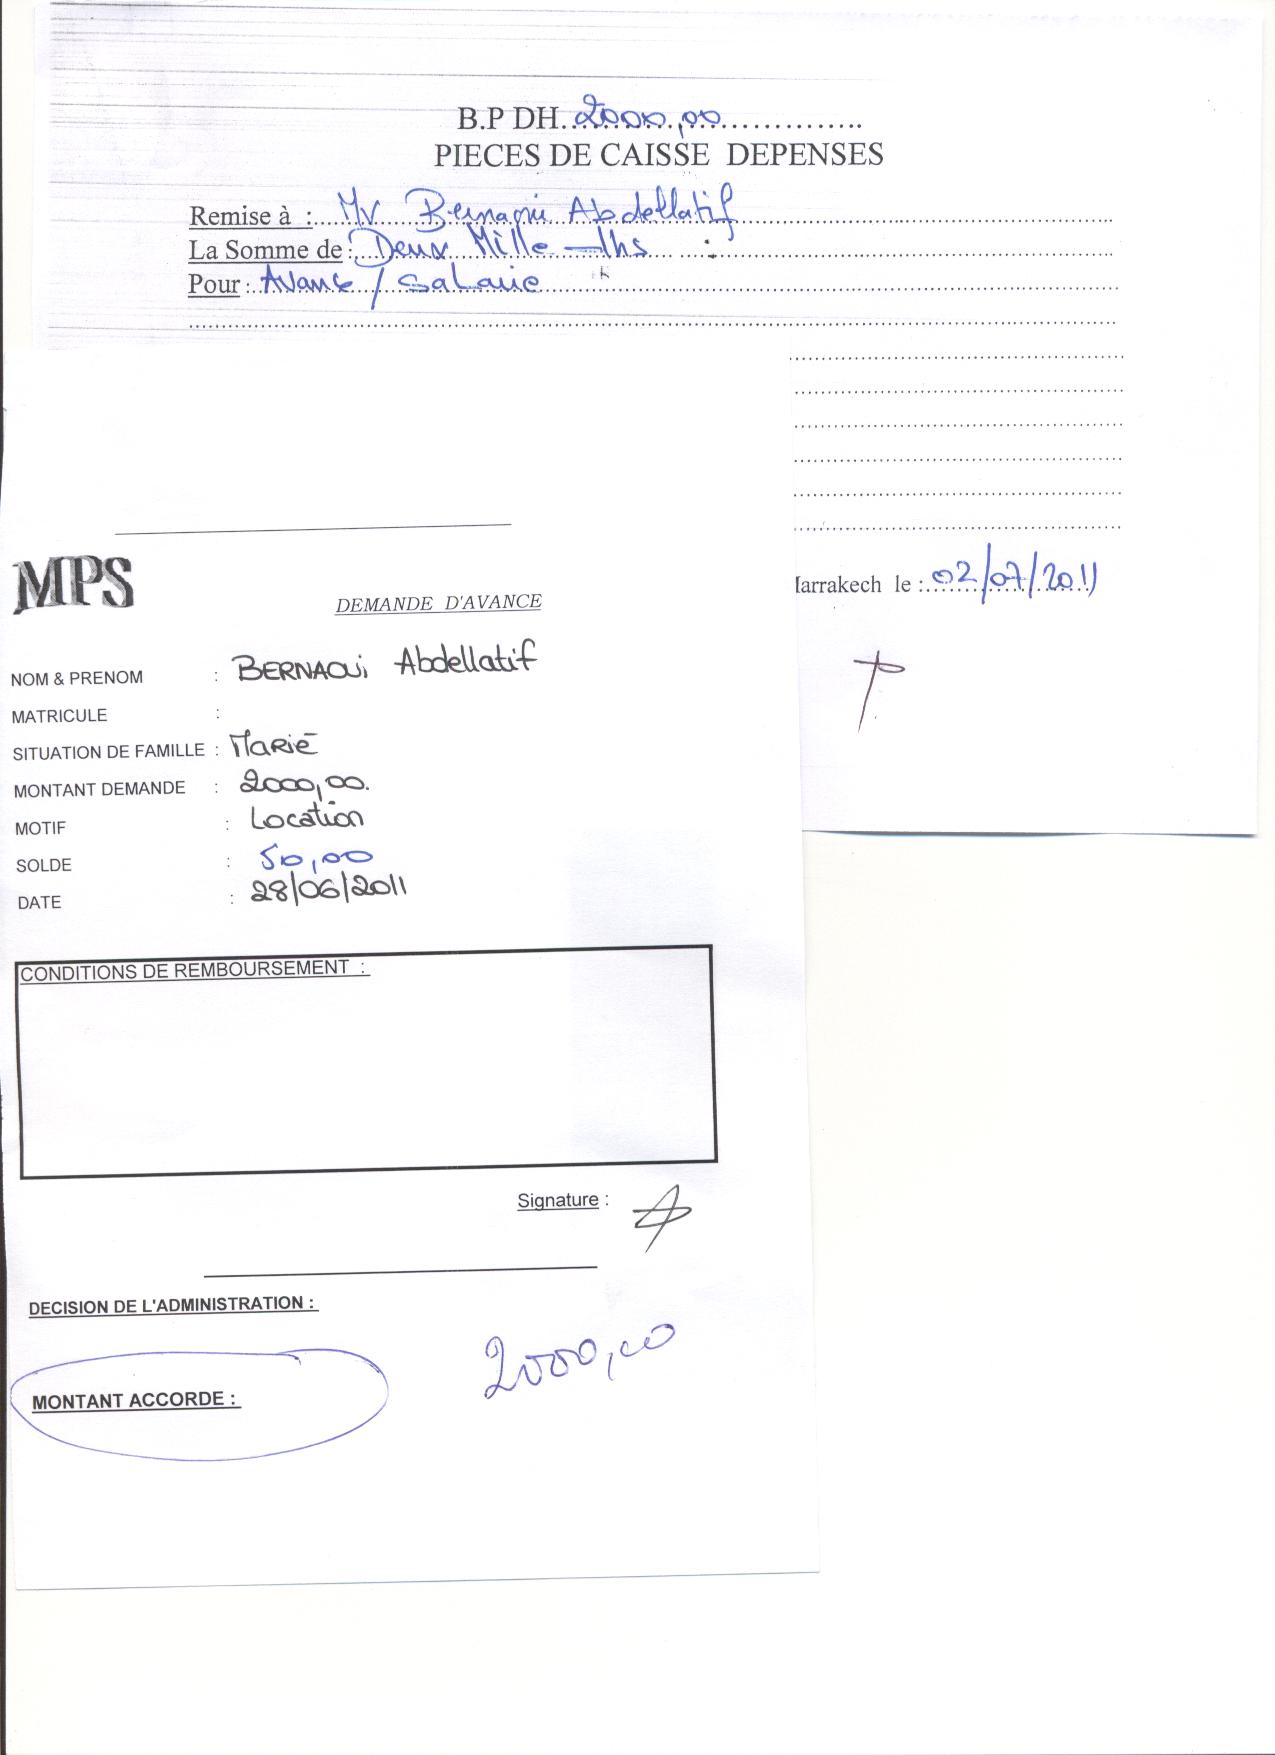 B.P DH 2000,00
PIECES DE CAISSE DEPENSES
Remise à : Mr Bernaoui Abdellatif
La Somme de : Deux Mille Dhs
Pour : Avance / Salaire
Marrakech le : 02/07/2011
MPS
DEMANDE D'AVANCE
NOM & PRENOM : BERNAOUi Abdellatif
MATRICULE :
SITUATION DE FAMILLE : Marié
MONTANT DEMANDE : 2000,00.
MOTIF : Location
SOLDE : 50,00
DATE : 28/06/2011
CONDITIONS DE REMBOURSEMENT :
Signature :
DECISION DE L'ADMINISTRATION :
2000,00
MONTANT ACCORDE :